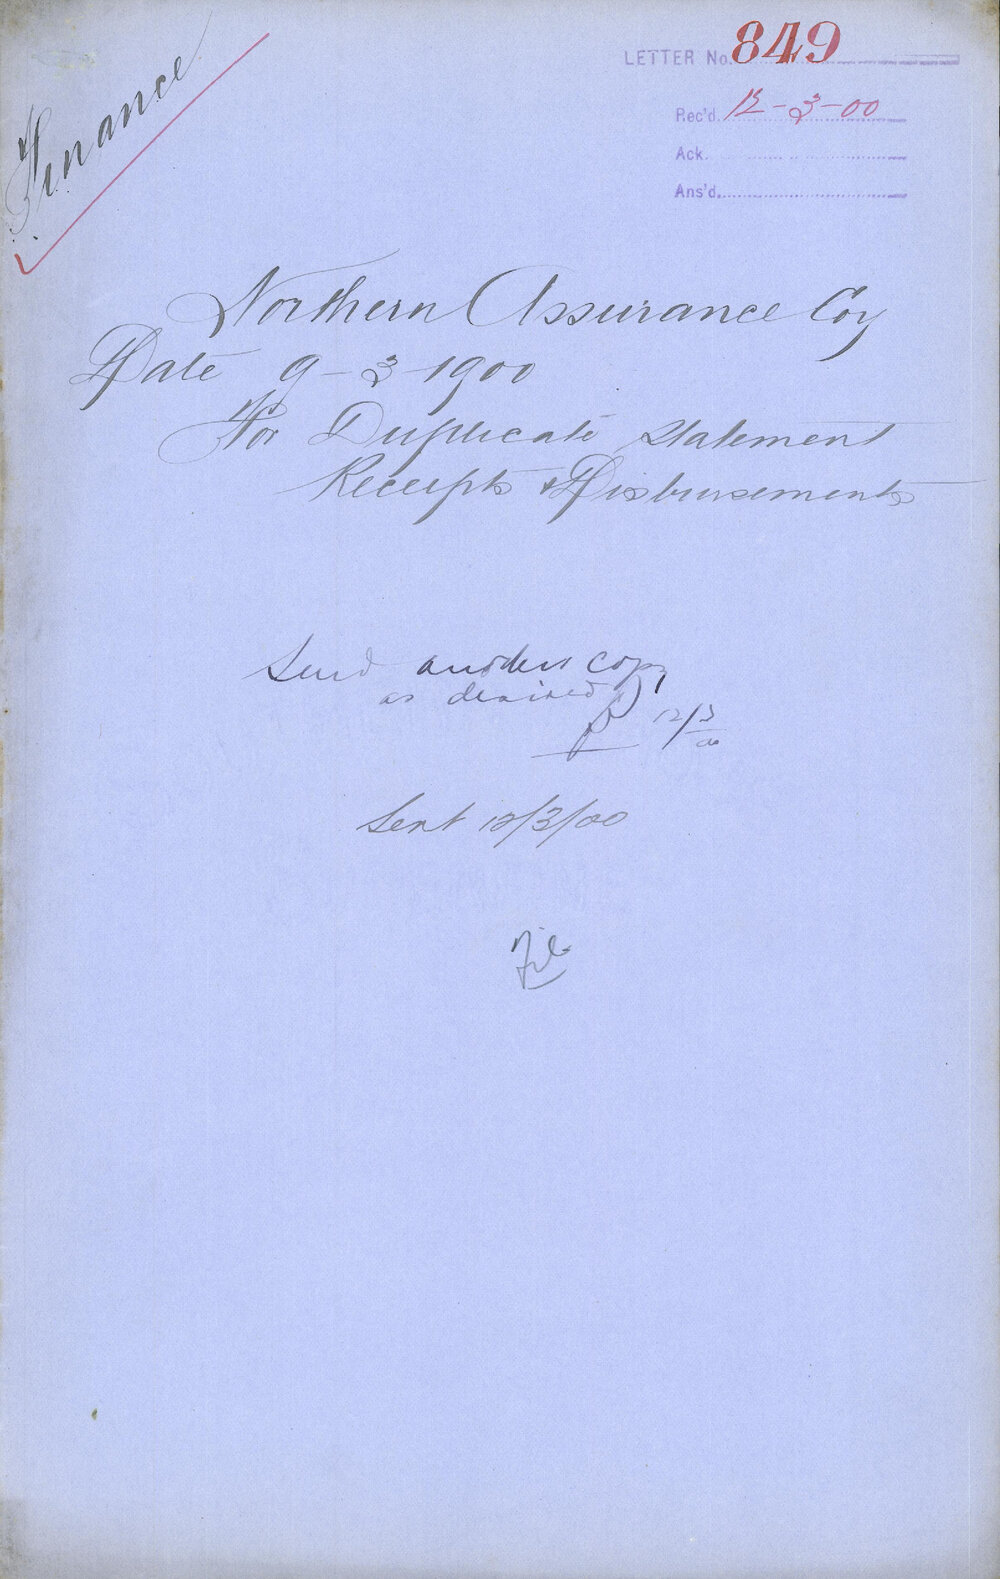 Finance
LETTER No. 849
Rec'd. 12-3-00
Ack.
Ans'd.
Northern Assurance Coy
Date 9-3-1900
For Duplicate Statement
Receipts & Disbursements
Send another copy
as desired
12/3/00
Sent 12/3/00
File